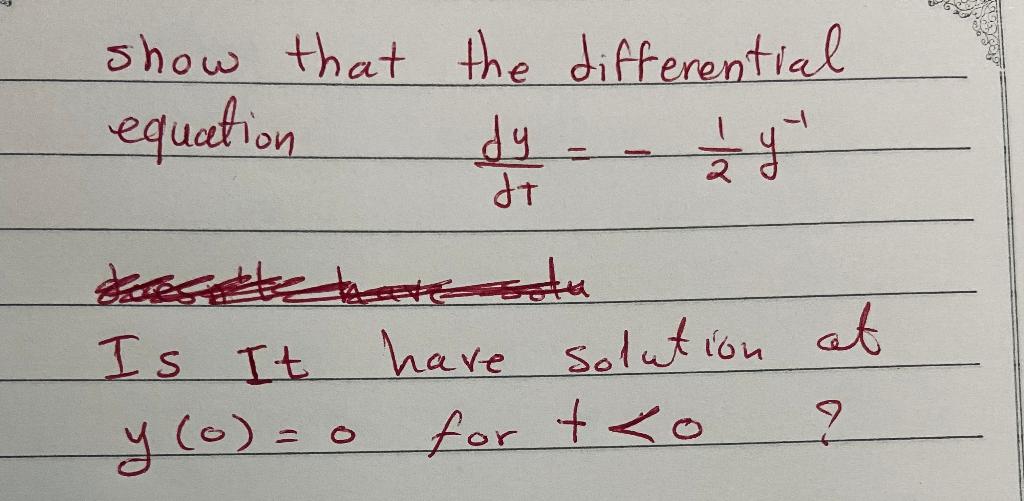 show that the differential
equation dy/dt = - 1/2 y⁻¹
Is It have solution at
y(0) = 0 for t < 0 ?